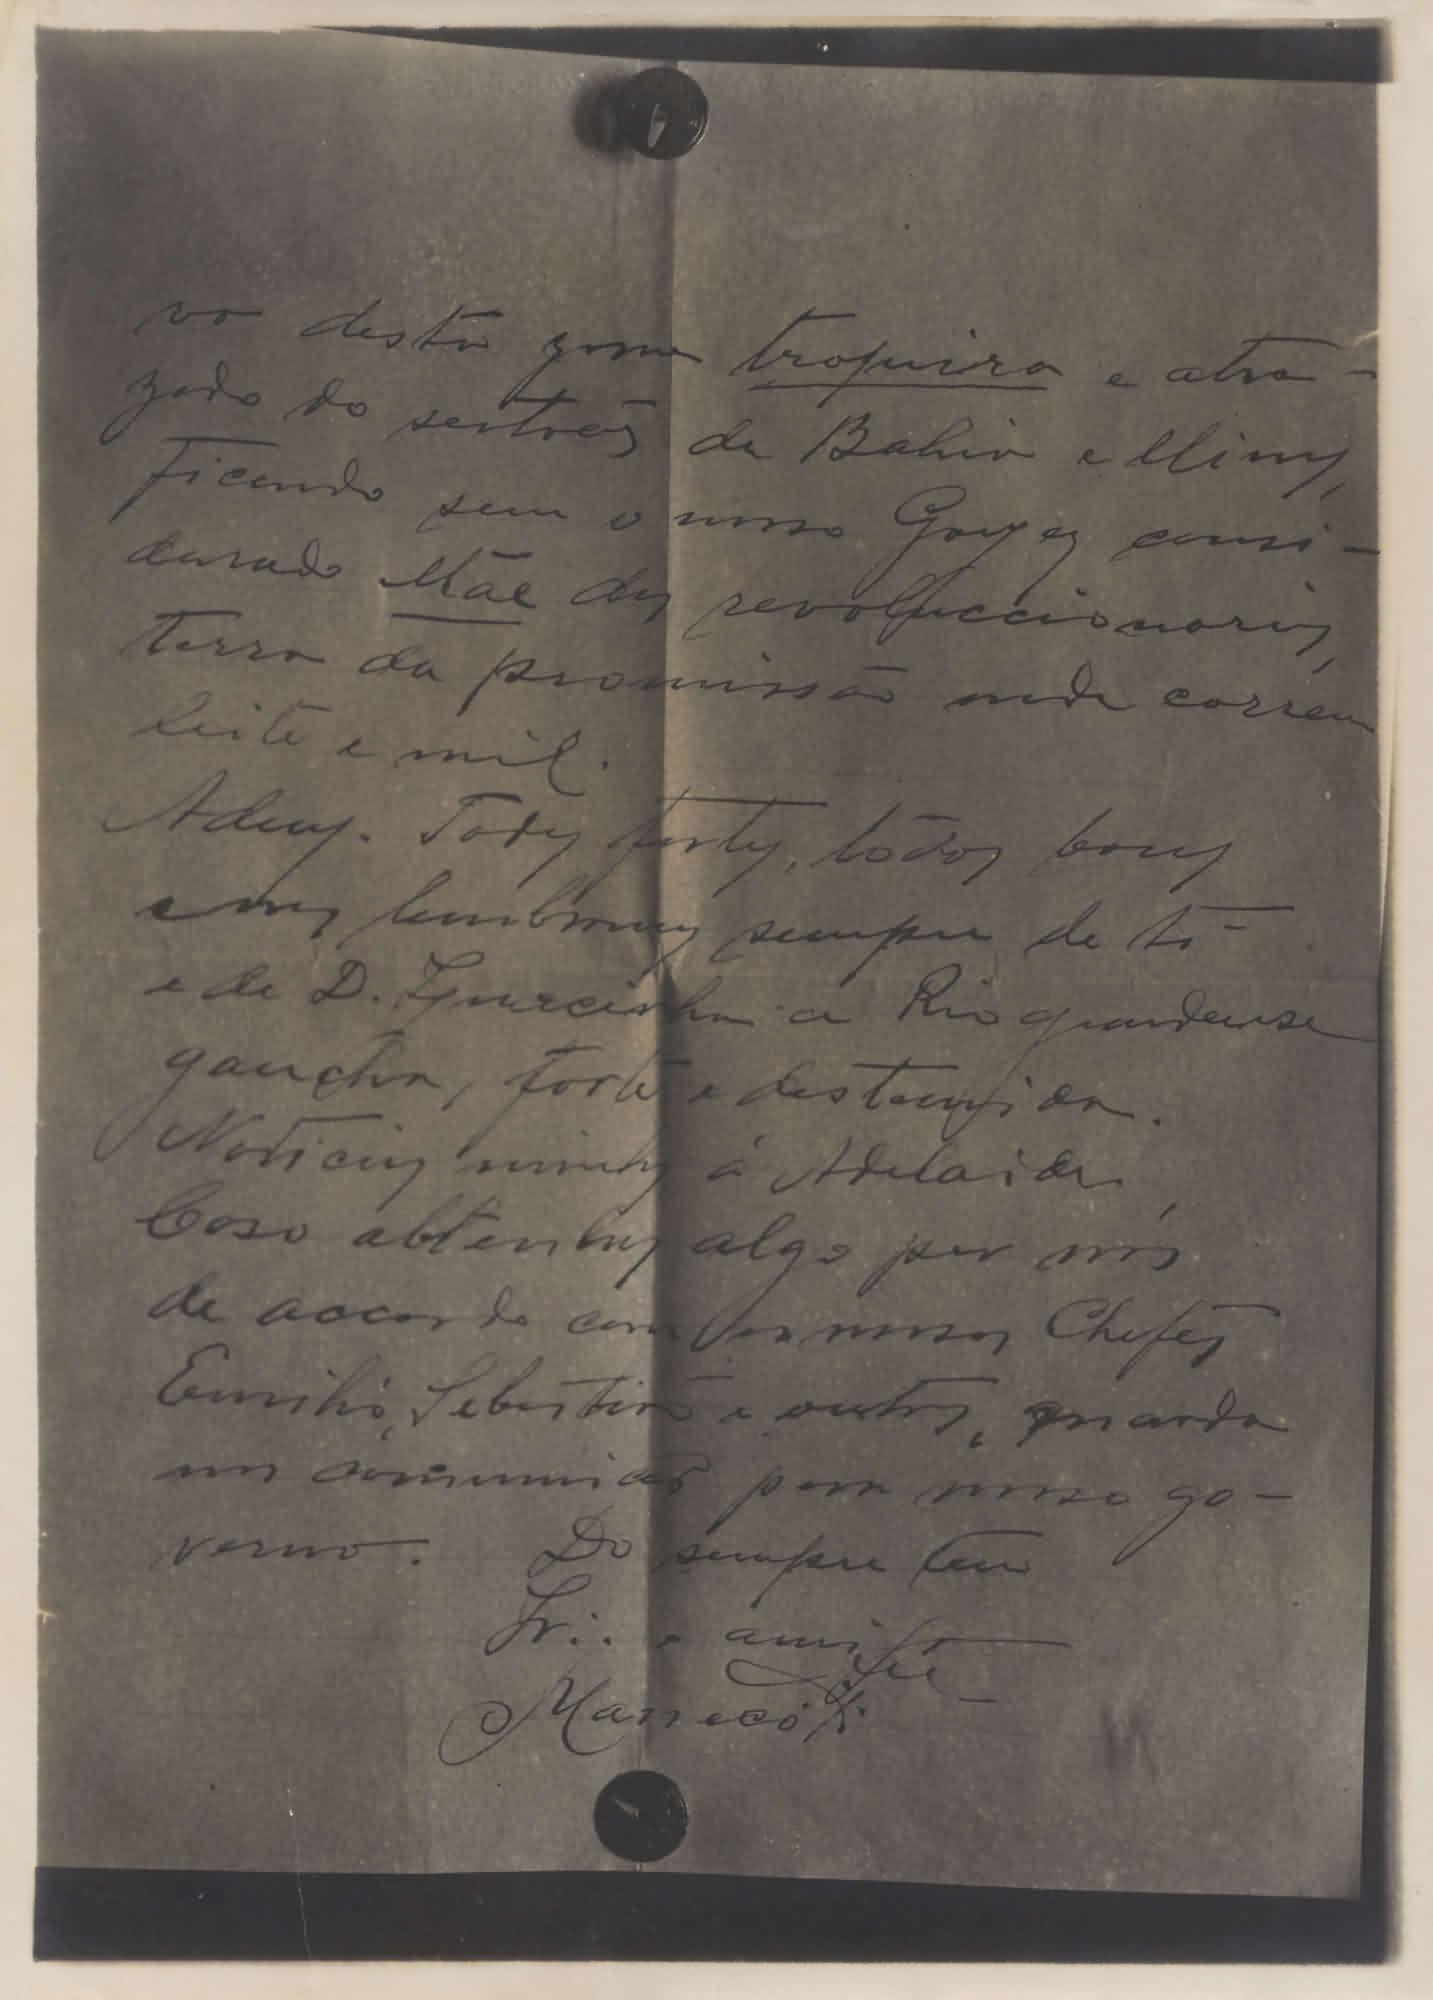 vo desta zona tropeira e atra-
zado do sertões da Bahia e Minas,
ficando sem o nosso Goyaz consi-
derado Mãe dos revoluccionarios,
terra da promissão onde correm
leite e mil.
Adeus. Todos fortes, tōdos bons
e nos lembramos sempre de ti
e de D. a Rio grandense
gaucha, forte e destemida.
Noticias minhas á Adelaide,
Caso obtenhas algo por nós
de accordo com os nossos Chefes
Emilio, Sebastião e outros,
nos para nosso go-
verno. Do sempre teu
Ir∴ e amigo
Maneco